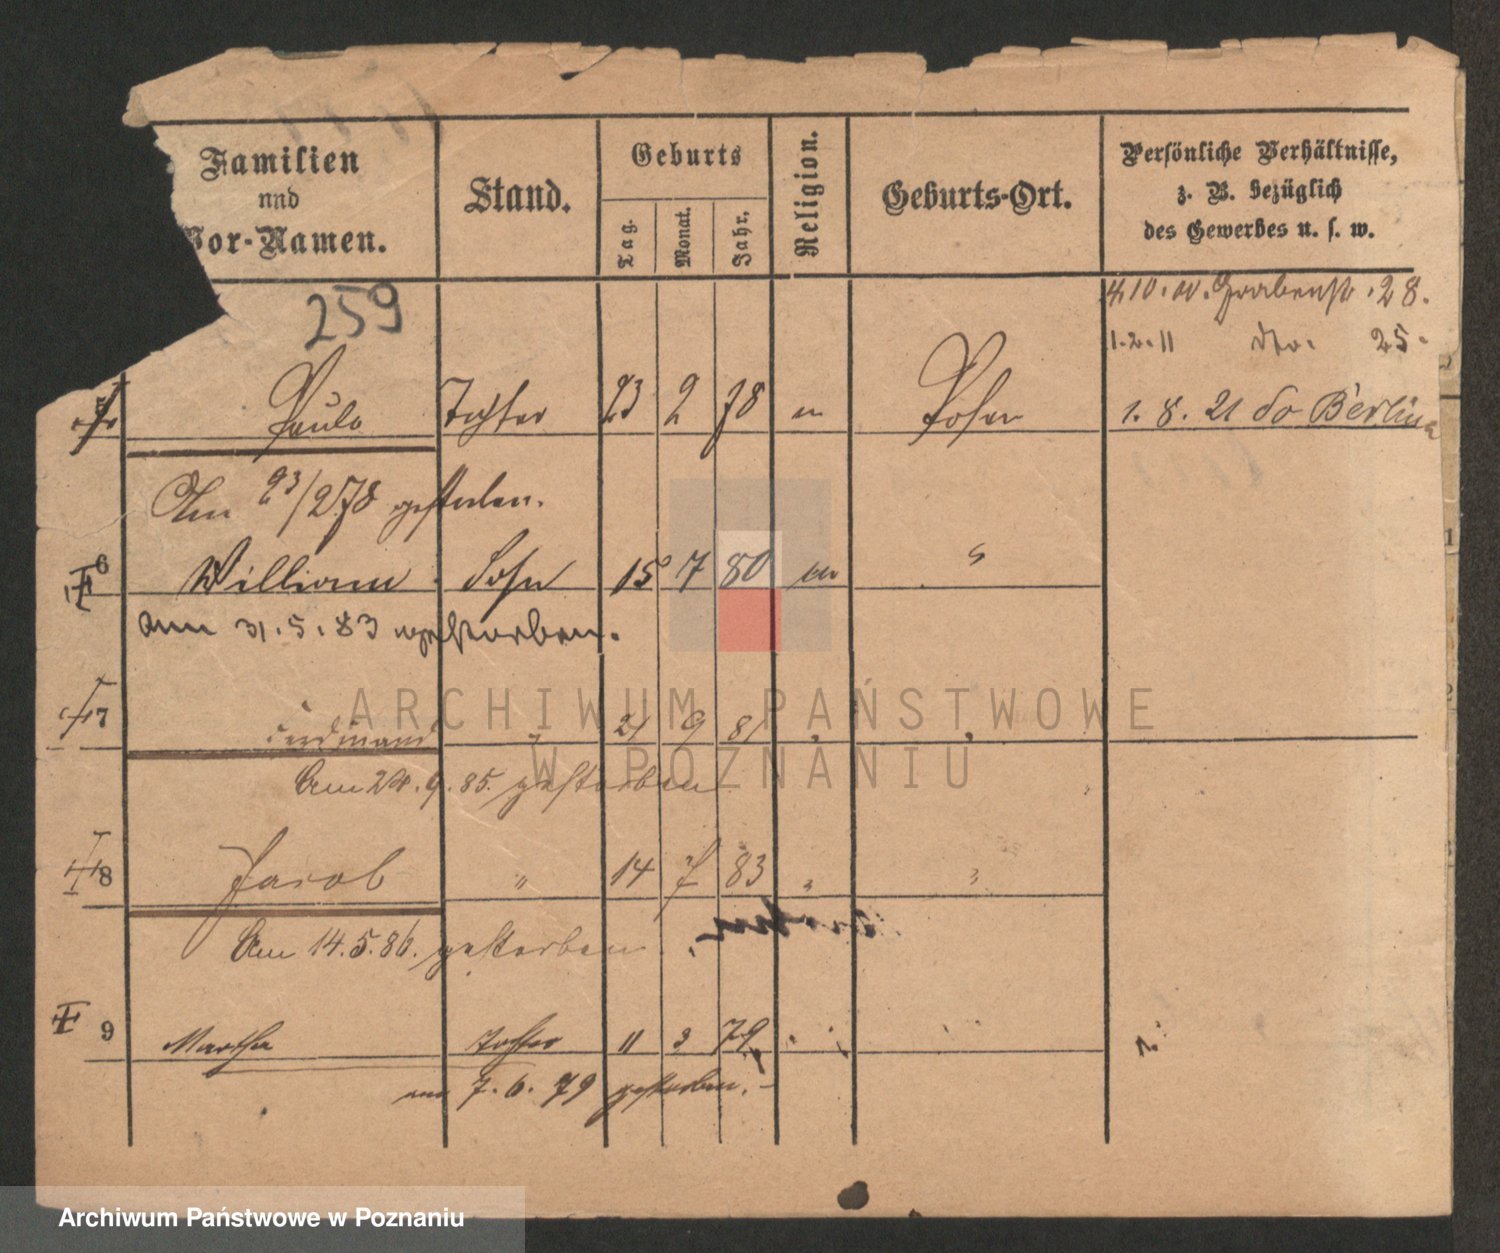 Familien
und
Vor-Namen.
Stand.
Geburts
Tag.
Monat.
Jahr.
Religion.
Geburts-Ort.
Persönliche Verhältnisse,
z. B. bezüglich
des Gewerbes u. s. w.
259
4.10.10. Grabenstr. 28.
1.2.11 dto. 25.
5 Paula Tochter 23 2 78 m Posen 1. 8. 21 do Berlin
Am 23/2 78 gestorben.
6 William Sohn 15 7 80 m "
am 31.5.83 gestorben.
7 Ferdinand " 21 9 81 " "
Am 24.9.85. gestorben
8 Jacob " 14 7 83 " "
Am 14.5.86. gestorben
9 Martha Tochter 11 3 79 " "
am 7.6.79 gestorben.
ARCHIWUM PAŃSTWOWE
W POZNANIU
Archiwum Państwowe w Poznaniu